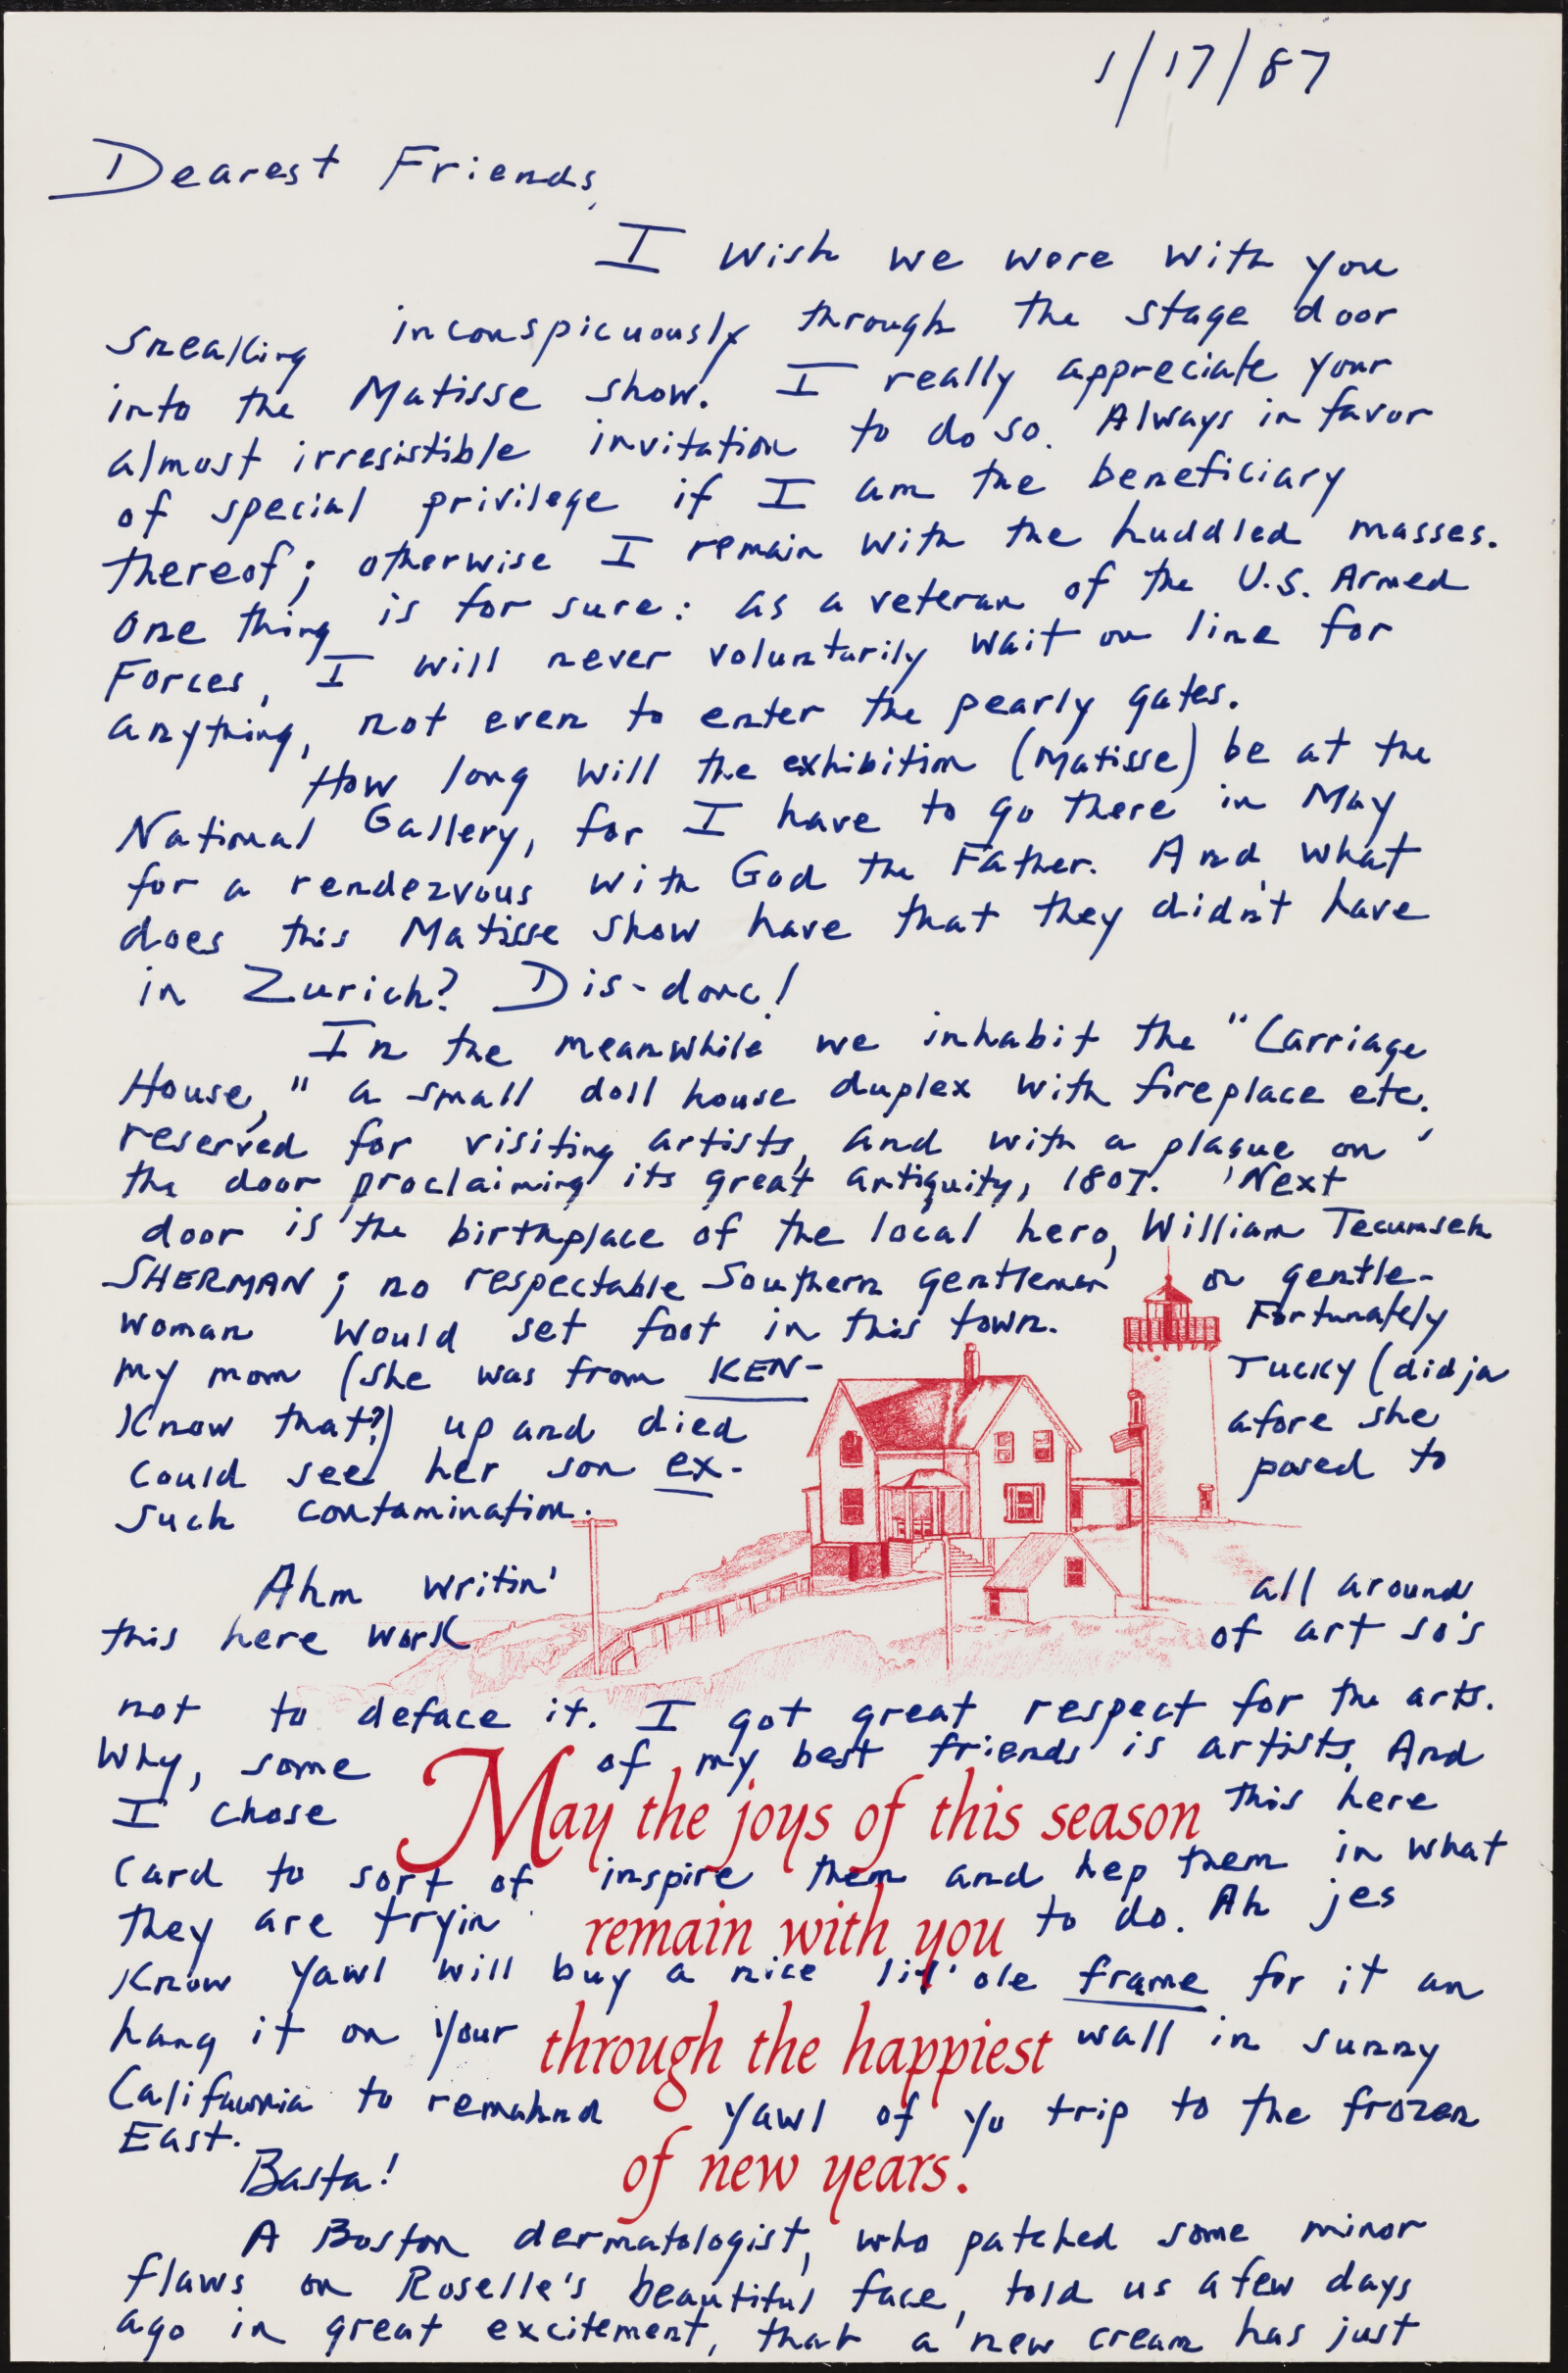 1/17/87
Dearest Friends,
I wish we were with you
sneaking inconspicuously through the stage door
into the Matisse show. I really appreciate your
almost irresistible invitation to do so. Always in favor
of special privilege if I am the beneficiary
thereof; otherwise I remain with the huddled masses.
One thing is for sure: as a veteran of the U.S. Armed
Forces, I will never voluntarily wait on line for
anything, not even to enter the pearly gates.
How long will the exhibition (Matisse) be at the
National Gallery, for I have to go there in May
for a rendezvous with God the Father. And what
does this Matisse show have that they didn't have
in Zurich? Dis-donc!
In the meanwhile we inhabit the "Carriage
House," a small doll house duplex with fireplace etc.,
reserved for visiting artists, and with a plaque on
the door proclaiming its great antiquity, 1807. Next
door is the birthplace of the local hero, William Tecumseh
SHERMAN; no respectable Southern gentleman or gentle-
woman would set foot in this town. Fortunately
my mom (she was from KEN- TUCKY (didja
know that?) up and died afore she
could see her son ex- posed to
such contamination.
Ahm writin' all around
this here work of art so's
not to deface it. I got great respect for the arts.
Why, some of my best friends is artists. And
I chose May the joys of this season this here
card to sort of inspire them and hep them in what
they are tryin' remain with you to do. Ah jes
know yawl will buy a nice lil' ole frame for it an
hang it on your through the happiest wall in sunny
Califawnia to remahnd yawl of yo trip to the frozen
East.
Basta! of new years.
A Boston dermatologist, who patched some minor
flaws on Roselle's beautiful face, told us a few days
ago in great excitement, that a new cream has just